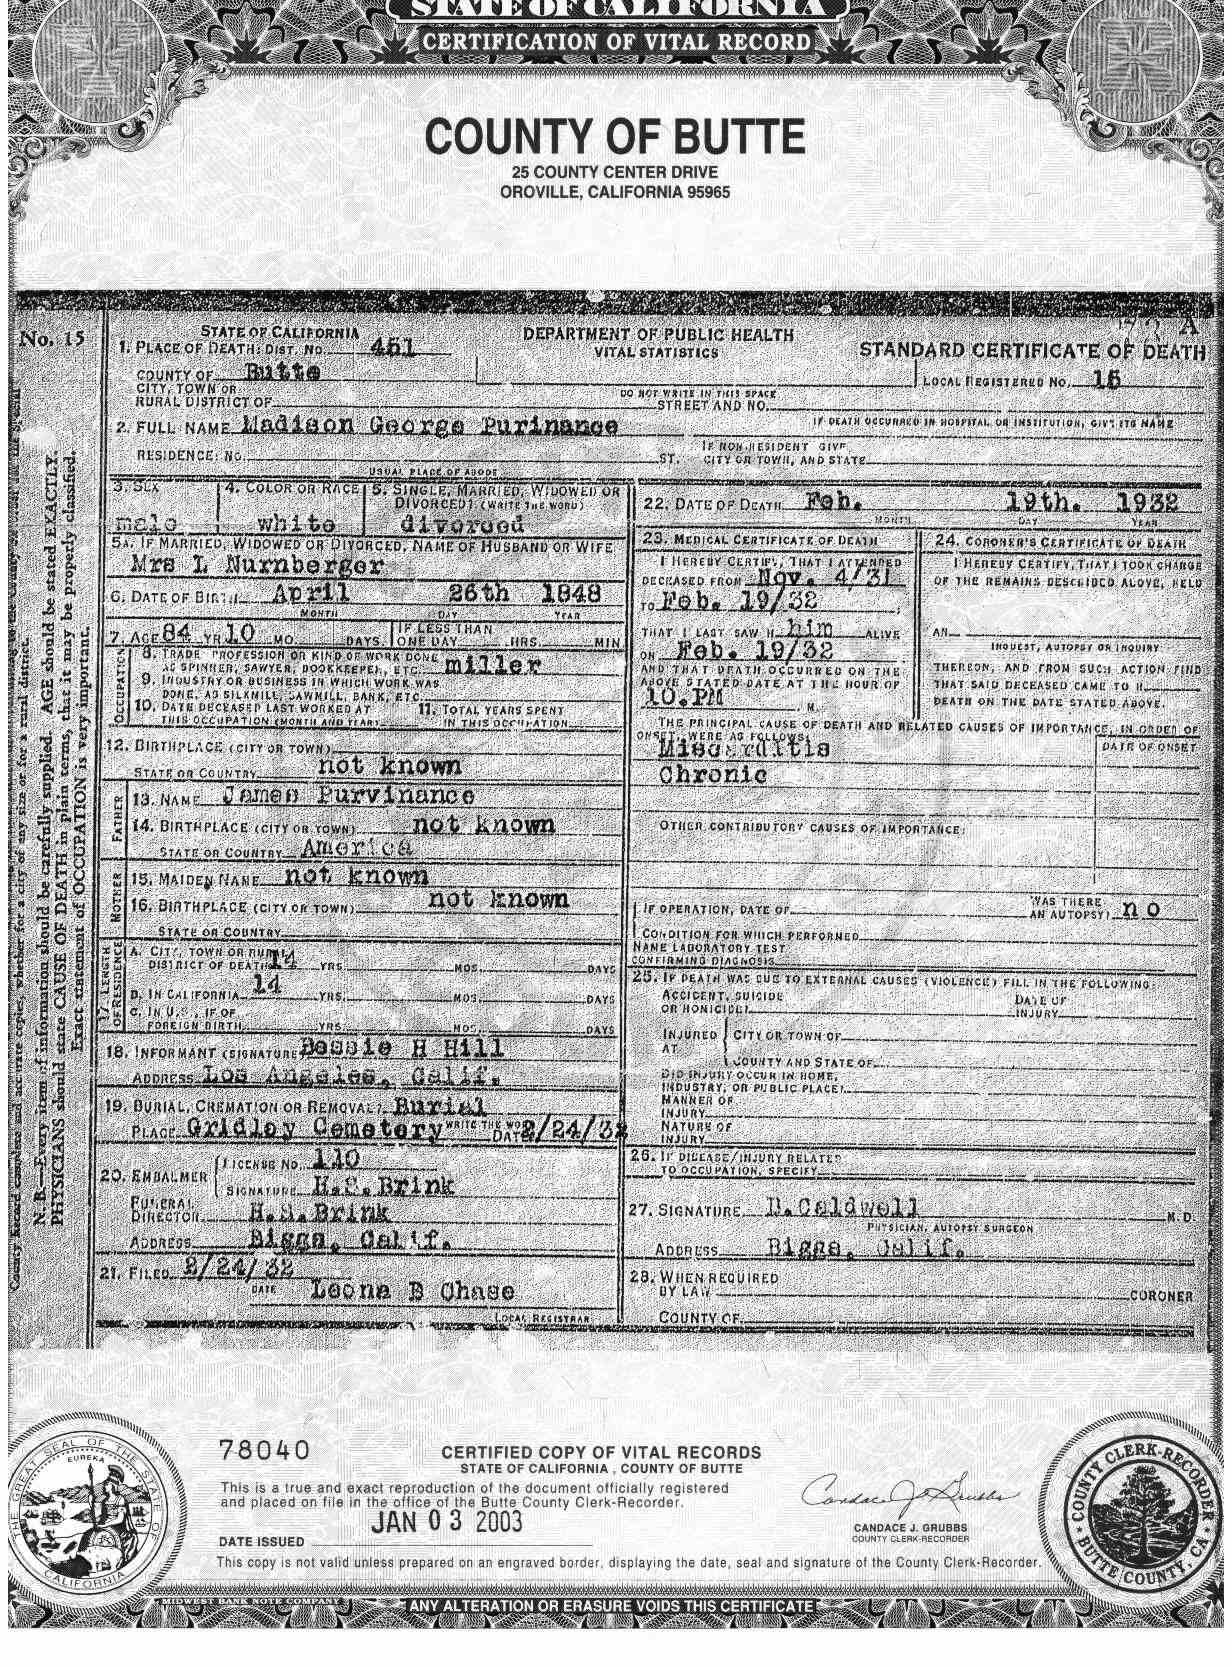 STATE OF CALIFORNIA
CERTIFICATION OF VITAL RECORD
COUNTY OF BUTTE
25 COUNTY CENTER DRIVE
OROVILLE, CALIFORNIA 95965
No. 15
STATE OF CALIFORNIA
DEPARTMENT OF PUBLIC HEALTH
VITAL STATISTICS
STANDARD CERTIFICATE OF DEATH
1. PLACE OF DEATH: DIST. No. 451
COUNTY OF Butte
LOCAL REGISTERED No. 15
CITY, TOWN OR
RURAL DISTRICT OF
DO NOT WRITE IN THIS SPACE
STREET AND NO.
IF DEATH OCCURRED IN HOSPITAL OR INSTITUTION, GIVE ITS NAME
2. FULL NAME Madison George Purinance
RESIDENCE: No. ST.
IF NON-RESIDENT GIVE
CITY OR TOWN, AND STATE
USUAL PLACE OF ABODE
3. SEX
male
4. COLOR OR RACE
white
5. SINGLE, MARRIED, WIDOWED OR
DIVORCED? (WRITE THE WORD)
divorced
5A. IF MARRIED, WIDOWED OR DIVORCED, NAME OF HUSBAND OR WIFE
Mrs L Nurnberger
6. DATE OF BIRTH April 26th 1848
MONTH DAY YEAR
7. AGE 84 YR. 10 MO. DAYS
IF LESS THAN
ONE DAY HRS. MIN
OCCUPATION
8. TRADE PROFESSION OR KIND OF WORK DONE
AS SPINNER, SAWYER, BOOKKEEPER, ETC. miller
9. INDUSTRY OR BUSINESS IN WHICH WORK WAS
DONE, AS SILKMILL, SAWMILL, BANK, ETC
10. DATE DECEASED LAST WORKED AT
THIS OCCUPATION (MONTH AND YEAR)
11. TOTAL YEARS SPENT
IN THIS OCCUPATION
12. BIRTHPLACE (CITY OR TOWN)
STATE OR COUNTRY not known
FATHER
13. NAME James Purvinance
14. BIRTHPLACE (CITY OR TOWN) not known
STATE OR COUNTRY America
MOTHER
15. MAIDEN NAME not known
16. BIRTHPLACE (CITY OR TOWN) not known
STATE OR COUNTRY
17 LENGTH
OF RESIDENCE
A. CITY, TOWN OR RURAL
DISTRICT OF DEATH 14 YRS. MOS. DAYS
B. IN CALIFORNIA 14 YRS. MOS. DAYS
C. IN U.S., IF OF
FOREIGN BIRTH YRS. MOS. DAYS
18. INFORMANT (SIGNATURE Bessie H Hill
ADDRESS Los Angeles, Calif.
19. BURIAL, CREMATION OR REMOVAL? Burial
WRITE THE WORD
PLACE Gridley Cemetery DATE 2/24/32
20. EMBALMER
LICENSE NO. 110
SIGNATURE H.S.Brink
FUNERAL
DIRECTOR H.S.Brink
ADDRESS Biggs, Calif.
21. FILED 2/24/32
DATE
Leona B Chase
LOCAL REGISTRAR
22. DATE OF DEATH Feb. 19th. 1932
MONTH DAY YEAR
23. MEDICAL CERTIFICATE OF DEATH
I HEREBY CERTIFY, THAT I ATTENDED
DECEASED FROM Nov. 4/31
TO Feb. 19/32
THAT I LAST SAW H him ALIVE
ON Feb. 19/32
AND THAT DEATH OCCURRED ON THE
ABOVE STATED DATE AT THE HOUR OF
10.PM M.
24. CORONER'S CERTIFICATE OF DEATH
I HEREBY CERTIFY, THAT I TOOK CHARGE
OF THE REMAINS DESCRIBED ABOVE, HELD
AN
INQUEST, AUTOPSY OR INQUIRY
THEREON, AND FROM SUCH ACTION FIND
THAT SAID DECEASED CAME TO H
DEATH ON THE DATE STATED ABOVE.
THE PRINCIPAL CAUSE OF DEATH AND RELATED CAUSES OF IMPORTANCE, IN ORDER OF
ONSET, WERE AS FOLLOWS:
DATE OF ONSET
Miocarditis
Chronic
OTHER CONTRIBUTORY CAUSES OF IMPORTANCE:
IF OPERATION, DATE OF
WAS THERE
AN AUTOPSY? no
CONDITION FOR WHICH PERFORMED
NAME LABORATORY TEST
CONFIRMING DIAGNOSIS
25. IF DEATH WAS DUE TO EXTERNAL CAUSES (VIOLENCE) FILL IN THE FOLLOWING:
ACCIDENT, SUICIDE
OR HOMICIDE?
DATE OF
INJURY
INJURED
AT
CITY OR TOWN OF
COUNTY AND STATE OF
DID INJURY OCCUR IN HOME,
INDUSTRY, OR PUBLIC PLACE?
MANNER OF
INJURY
NATURE OF
INJURY
26. IF DISEASE/INJURY RELATED
TO OCCUPATION, SPECIFY
27. SIGNATURE D.Caldwell M.D.
PHYSICIAN, AUTOPSY SURGEON
ADDRESS Biggs, Calif.
28. WHEN REQUIRED
BY LAW CORONER
COUNTY OF
N. B.—Every item of information should be carefully supplied. AGE should be stated EXACTLY.
PHYSICIANS should state CAUSE OF DEATH in plain terms, that it may be properly classified.
Exact statement of OCCUPATION is very important.
78040
CERTIFIED COPY OF VITAL RECORDS
STATE OF CALIFORNIA, COUNTY OF BUTTE
This is a true and exact reproduction of the document officially registered
and placed on file in the office of the Butte County Clerk-Recorder.
DATE ISSUED JAN 03 2003
Candace J. Grubbs
CANDACE J. GRUBBS
COUNTY CLERK-RECORDER
This copy is not valid unless prepared on an engraved border, displaying the date, seal and signature of the County Clerk-Recorder.
THE GREAT SEAL OF THE STATE OF CALIFORNIA
EUREKA
COUNTY CLERK-RECORDER
BUTTE COUNTY, CA
MIDWEST BANK NOTE COMPANY
ANY ALTERATION OR ERASURE VOIDS THIS CERTIFICATE